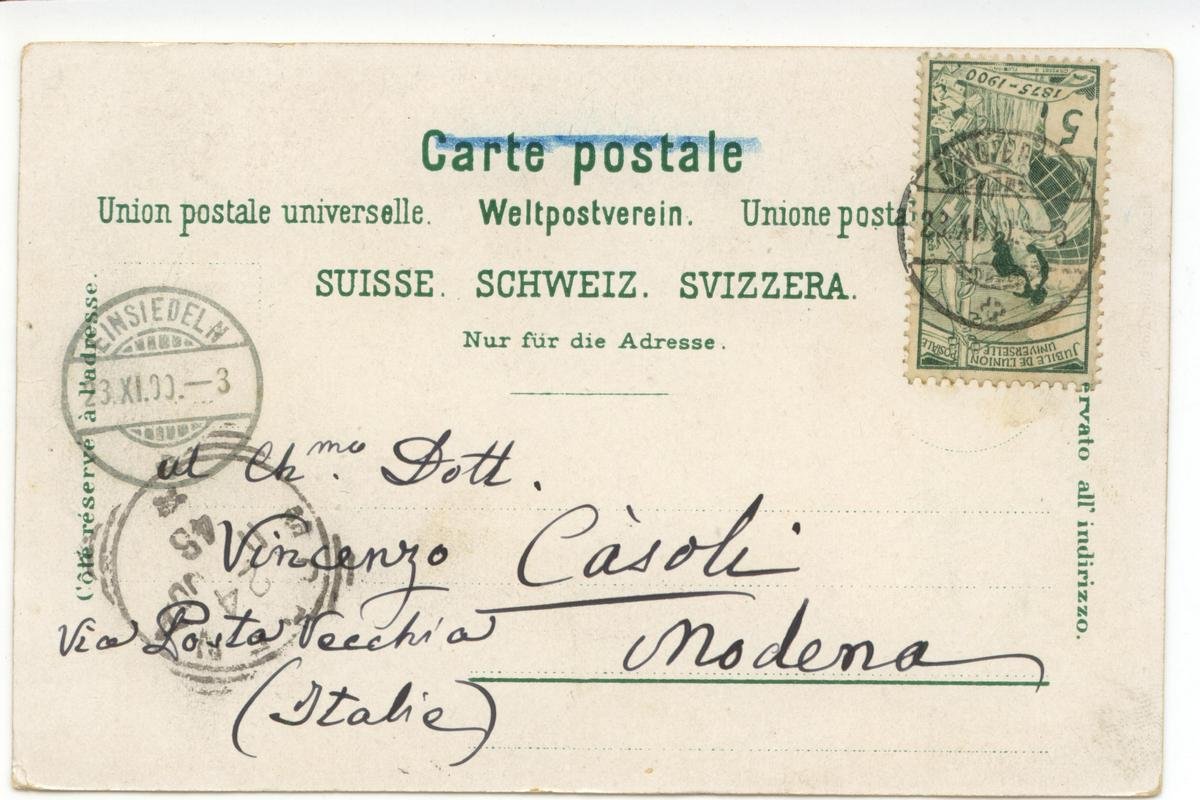 Carte postale
Union postale universelle. Weltpostverein. Unione posta
SUISSE. SCHWEIZ. SVIZZERA.
Nur für die Adresse.
Côté réservé à l'adresse.
ervato all' indirizzo.
1875-1900
5
JUBILÉ DE L'UNION
POSTALE UNIVERSELLE
23.XI.00.—3
EINSIEDELN
23.XI.00.—3
al Ch.mo Dott.
Vincenzo Càsoli
Via Posta Vecchia Modena
(Italie)